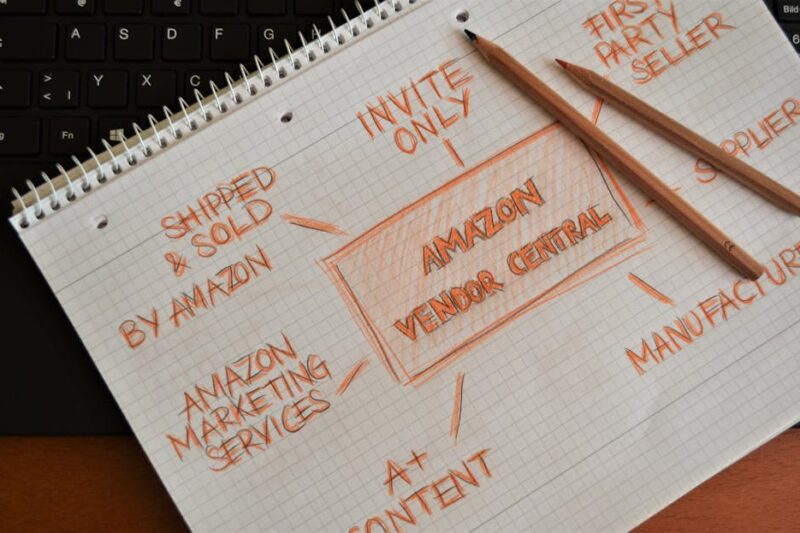 AMAZON
VENDOR CENTRAL
INVITE
ONLY
FIRST
PARTY
SELLER
SUPPLIER
MANUFACTURE
A+
CONTENT
AMAZON
MARKETING
SERVICES
SHIPPED
& SOLD
BY AMAZON
A S D F G H
Y X C V
Fn
Bild
6